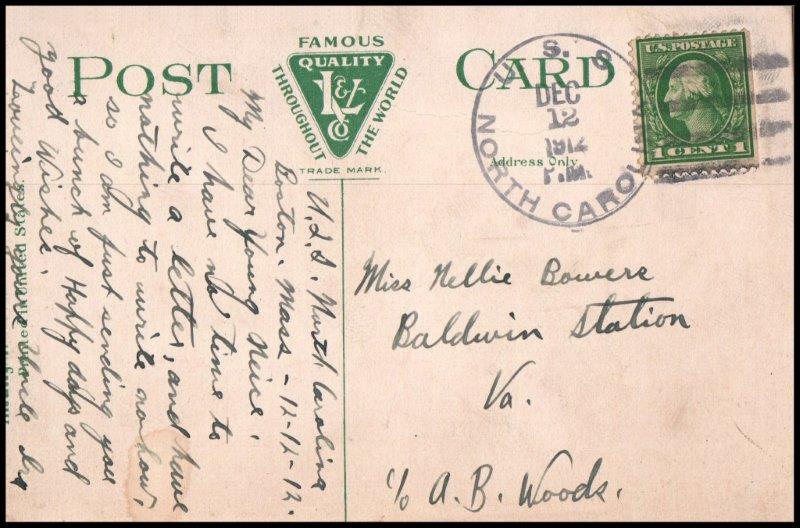 POST CARD
FAMOUS
QUALITY
THROUGHOUT
THE WORLD
K&L
CO
TRADE MARK.
Address Only
U. S. S.
NORTH CAROLINA
DEC
12
1912
P.M.
U.S. POSTAGE
1 CENT 1
U.S.S. North Carolina
Boston. Mass - 12-12-12.
My Dear Young Neice.
I have no time to
write a letter, and have
nothing to write no how,
so I am just sending you
a bunch of Happy days and
good Wishes.
Lovingly your Uncle
Printed in United States.
Miss Nellie Bowers
Baldwin Station
Va.
c/o A. B. Woods.